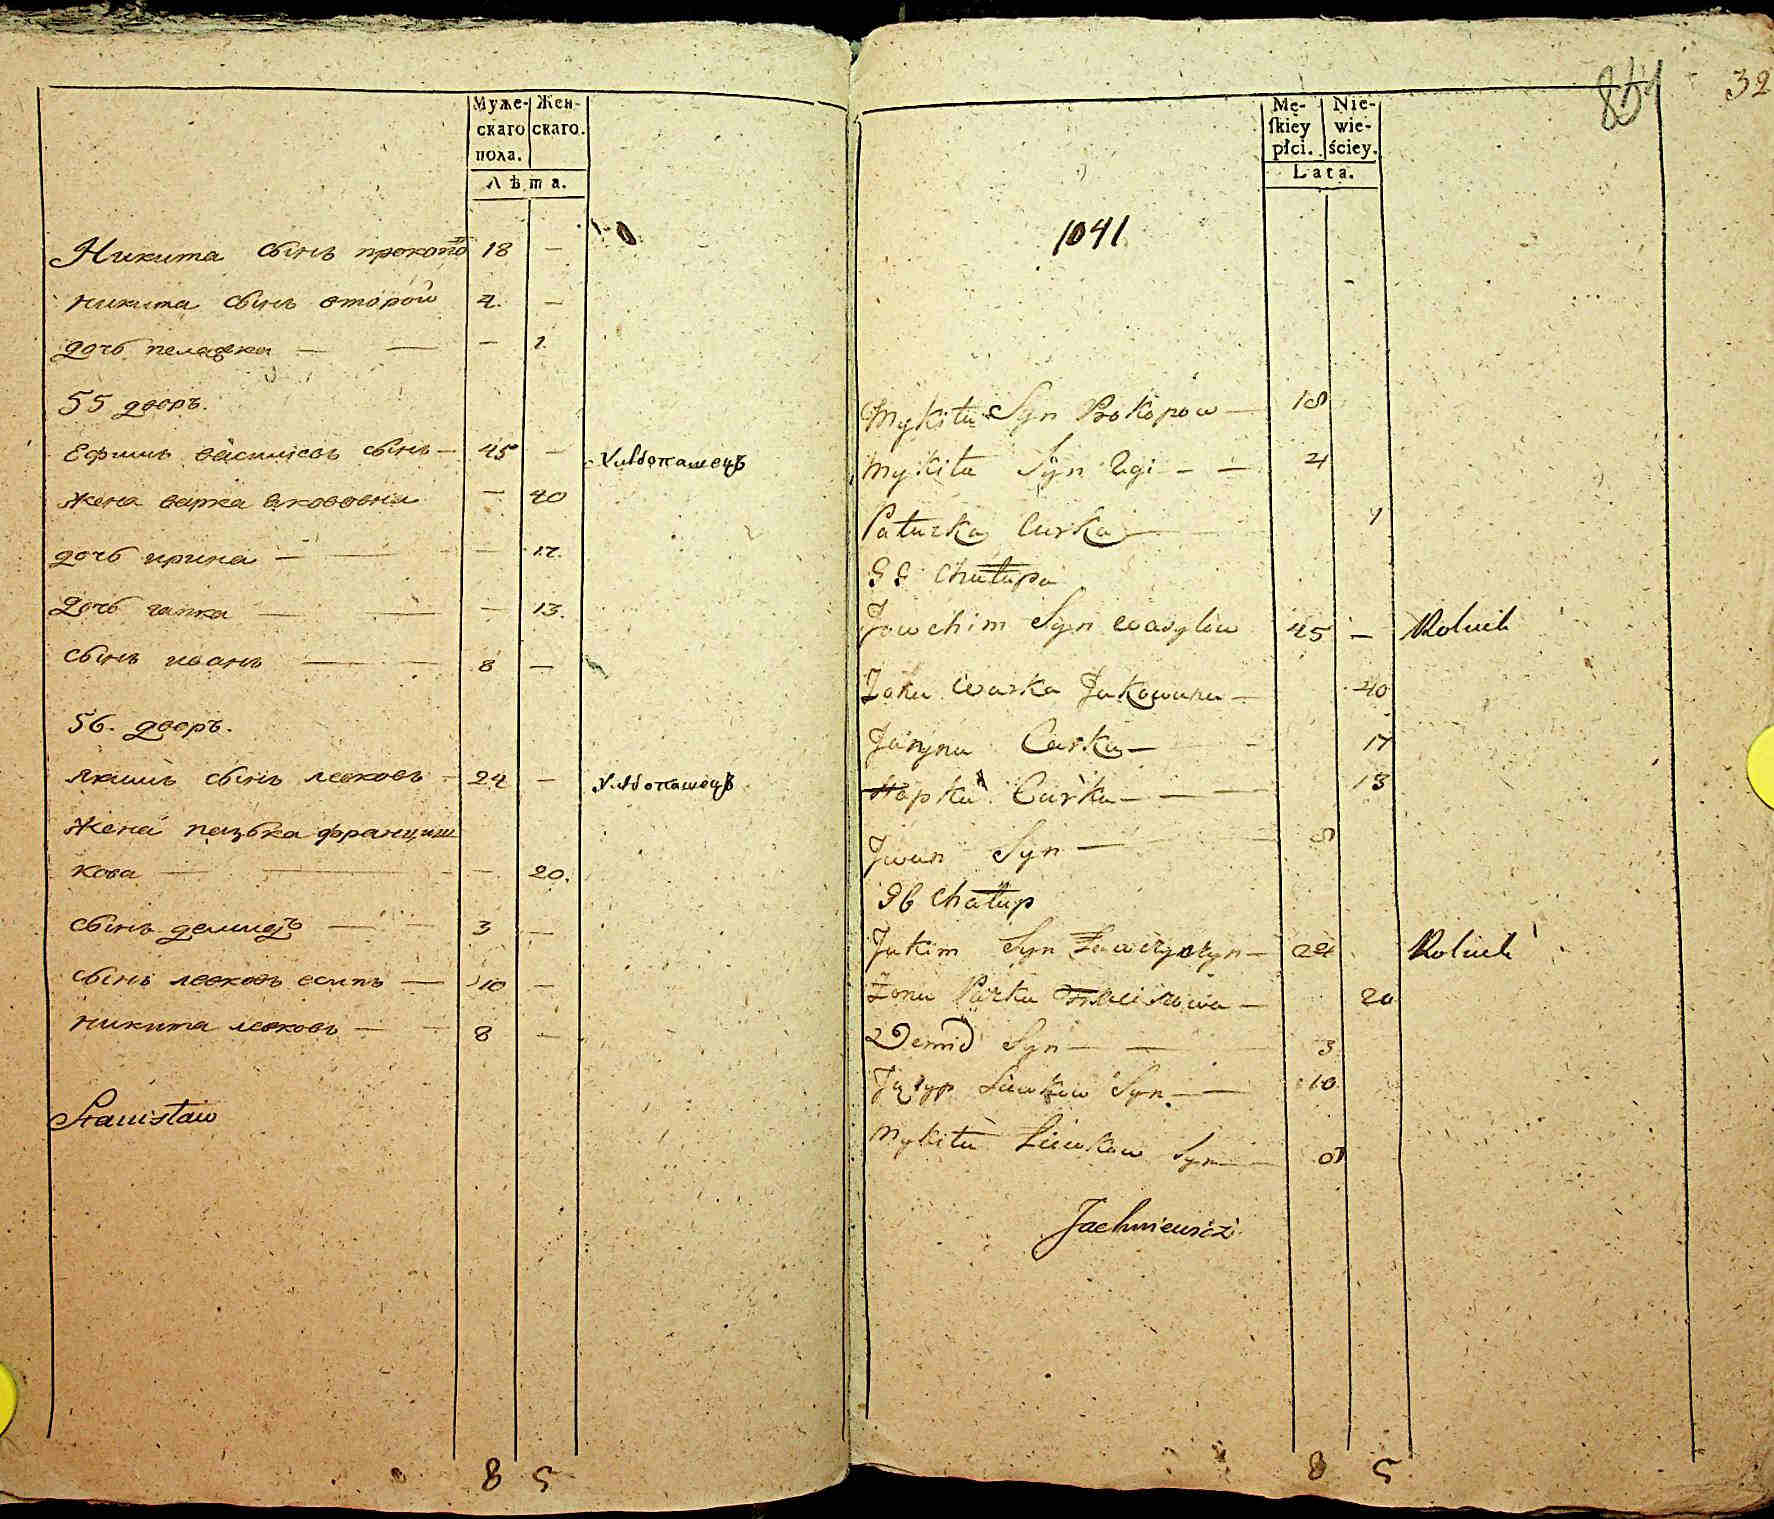 Муже- Жен-
скаго скаго.
пола.
Лѣта.
Никита сынъ прокопо 18 —
никита сынъ второй 4. —
дочь пелагка — — — 1.
55 дворъ.
Ефимъ василiевъ сынъ — 45 — Хлѣбопашецъ
жена варка якововна — 40
дочь ирина — — — 17.
дочь гапка — — — 13.
сынъ иванъ — — 8 —
56. дворъ.
якимъ сынъ левковъ — 24 — Хлѣбопашецъ
жена пазька францишкова — — — 20.
сынъ демидъ — — 3 —
сынъ левковъ есипъ — 10 —
никита левковъ — — 8 —
Stanisław
8 5
854 32
Mę- Nie-
skiey wie-
płci. ściey.
Lata.
1041
Mykita Syn Prokopow — 18
Mykita Syn 2gi — — 4
Curka — 1
55 Chałupa
Jowchim Syn Wasylow 45 — Rolnik
Żona Warka Jakowowna — 40
Jaryna Curka — 17
Hapka Curka — — — 13
Jwan Syn — 8
56 Chałup
Jakim Syn — 24 Rolnik
Żona Pazka — 20
Demid Syn — — 3
Syn — 10
Mykita Lewkow Syn — 8
Jachniewicz
8 5